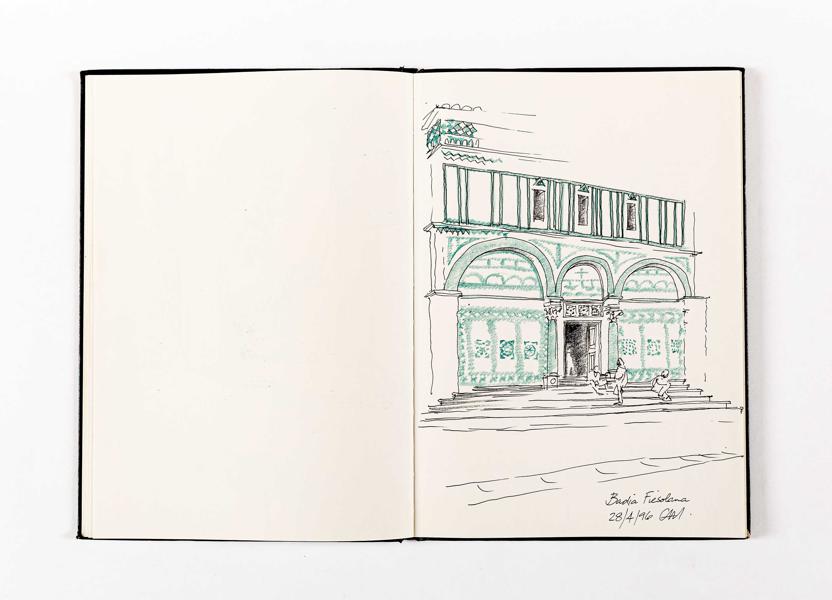 Badia Fiesolana
28/4/96